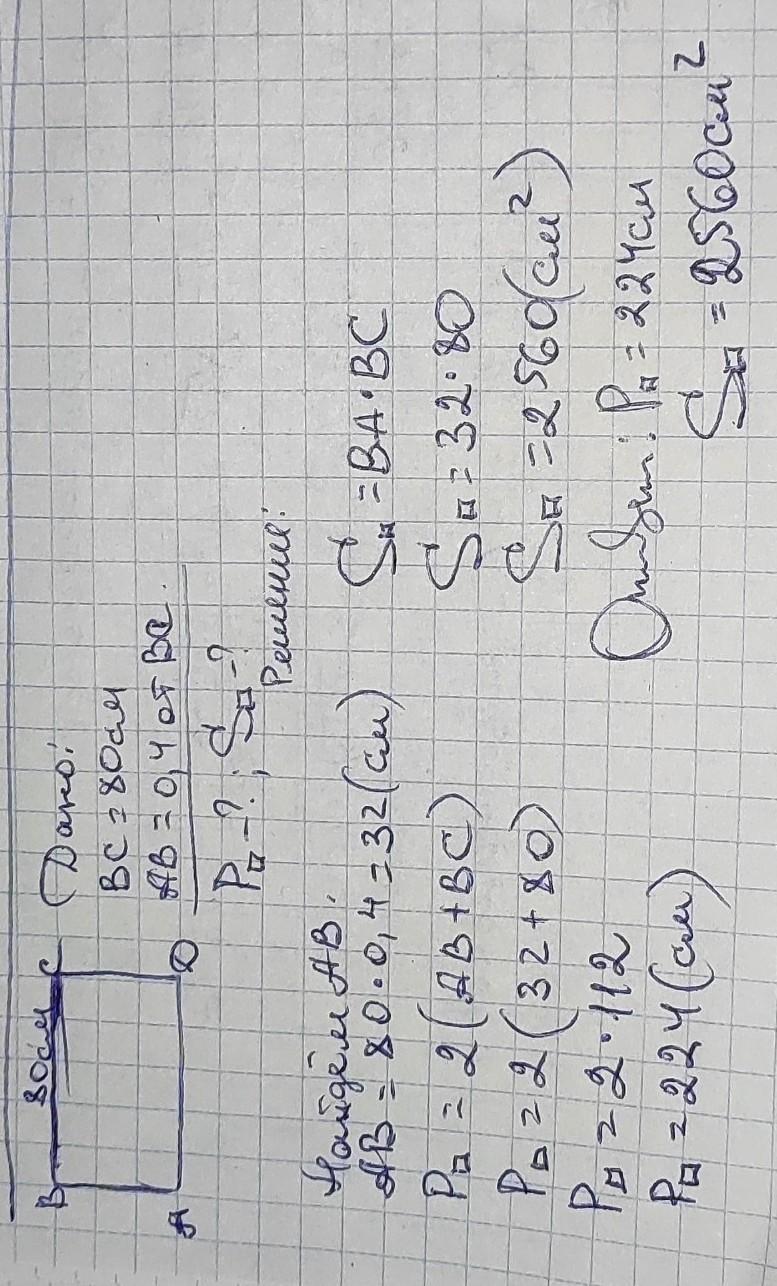 B 80см C
A D
Дано:
BC = 80см
AB = 0,4 от BC.
P□ -?; S□ -?
Решение:
Найдём AB.
AB = 80·0,4 = 32(см)
P□ = 2(AB+BC)
P□ = 2(32+80)
P□ = 2·112
P□ = 224(см)
S□ = BA·BC
S□ = 32·80
S□ = 2560(см²)
Ответ: P□ = 224см
S□ = 2560см²